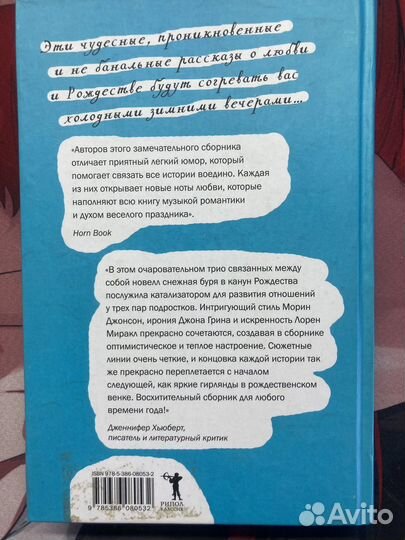 Эти чудесные, проникновенные
и не банальные рассказы о любви
и Рождестве будут согревать вас
холодными зимними вечерами...
«Авторов этого замечательного сборника
отличает приятный легкий юмор, который
помогает связать все истории воедино. Каждая
из них открывает новые ноты любви, которые
наполняют всю книгу музыкой романтики
и духом веселого праздника».
Horn Book
«В этом очаровательном трио связанных между
собой новелл снежная буря в канун Рождества
послужила катализатором для развития отношений
у трех пар подростков. Интригующий стиль Морин
Джонсон, ирония Джона Грина и искренность Лорен
Миракл прекрасно сочетаются, создавая в сборнике
оптимистическое и теплое настроение. Сюжетные
линии очень четкие, и концовка каждой истории так
же прекрасно переплетается с началом
следующей, как яркие гирлянды в рождественском
венке. Восхитительный сборник для любого
времени года!»
Дженнифер Хьюберт,
писатель и литературный критик
ISBN 978-5-386-08053-2
9 785386 080532
РИПОЛ
КЛАССИК
Avito